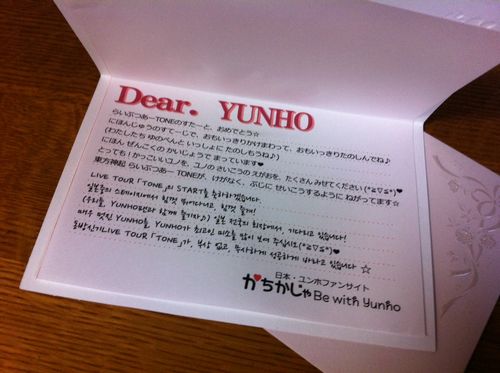 Dear. YUNHO
らいぶつあーTONEのすたーと、おめでとう☆
にほんじゅうのすてーじで、おもいっきりかけまわって、おもいっきりたのしんでね♪
(わたしたち ゆのぺんと いっしょに たのしもうね♪)
にほん ぜんこくの かいじょうで まっています♥
とっても！かっこいいユノを、ユノの さいこうの えがおを、たくさん みせてください(*≧∇≦*)♥
東方神起 らいぶつあー TONEが、けがなく、ぶじに せいこうするように ねがってます☆
LIVE TOUR「TONE」의 START를 축하하겠습니다.
일본중의 스테이지에서 힘껏 뛰어다니고, 힘껏 즐겨!
(우리들, YUNHO팬과 함께 즐기자♪) 일본 전국의 회장에서, 기다리고 있습니다!
매우 멋진 YUNHO를, YUNHO가 최고인 미소를 많이 보여 주십시오(*≧∇≦*)♥
동방신기LIVE TOUR「TONE」가, 부상 없고, 무사하게 성공하게 바라고 있습니다 ☆
日本・ユンホファンサイト
がちかじゃ Be with Yunho